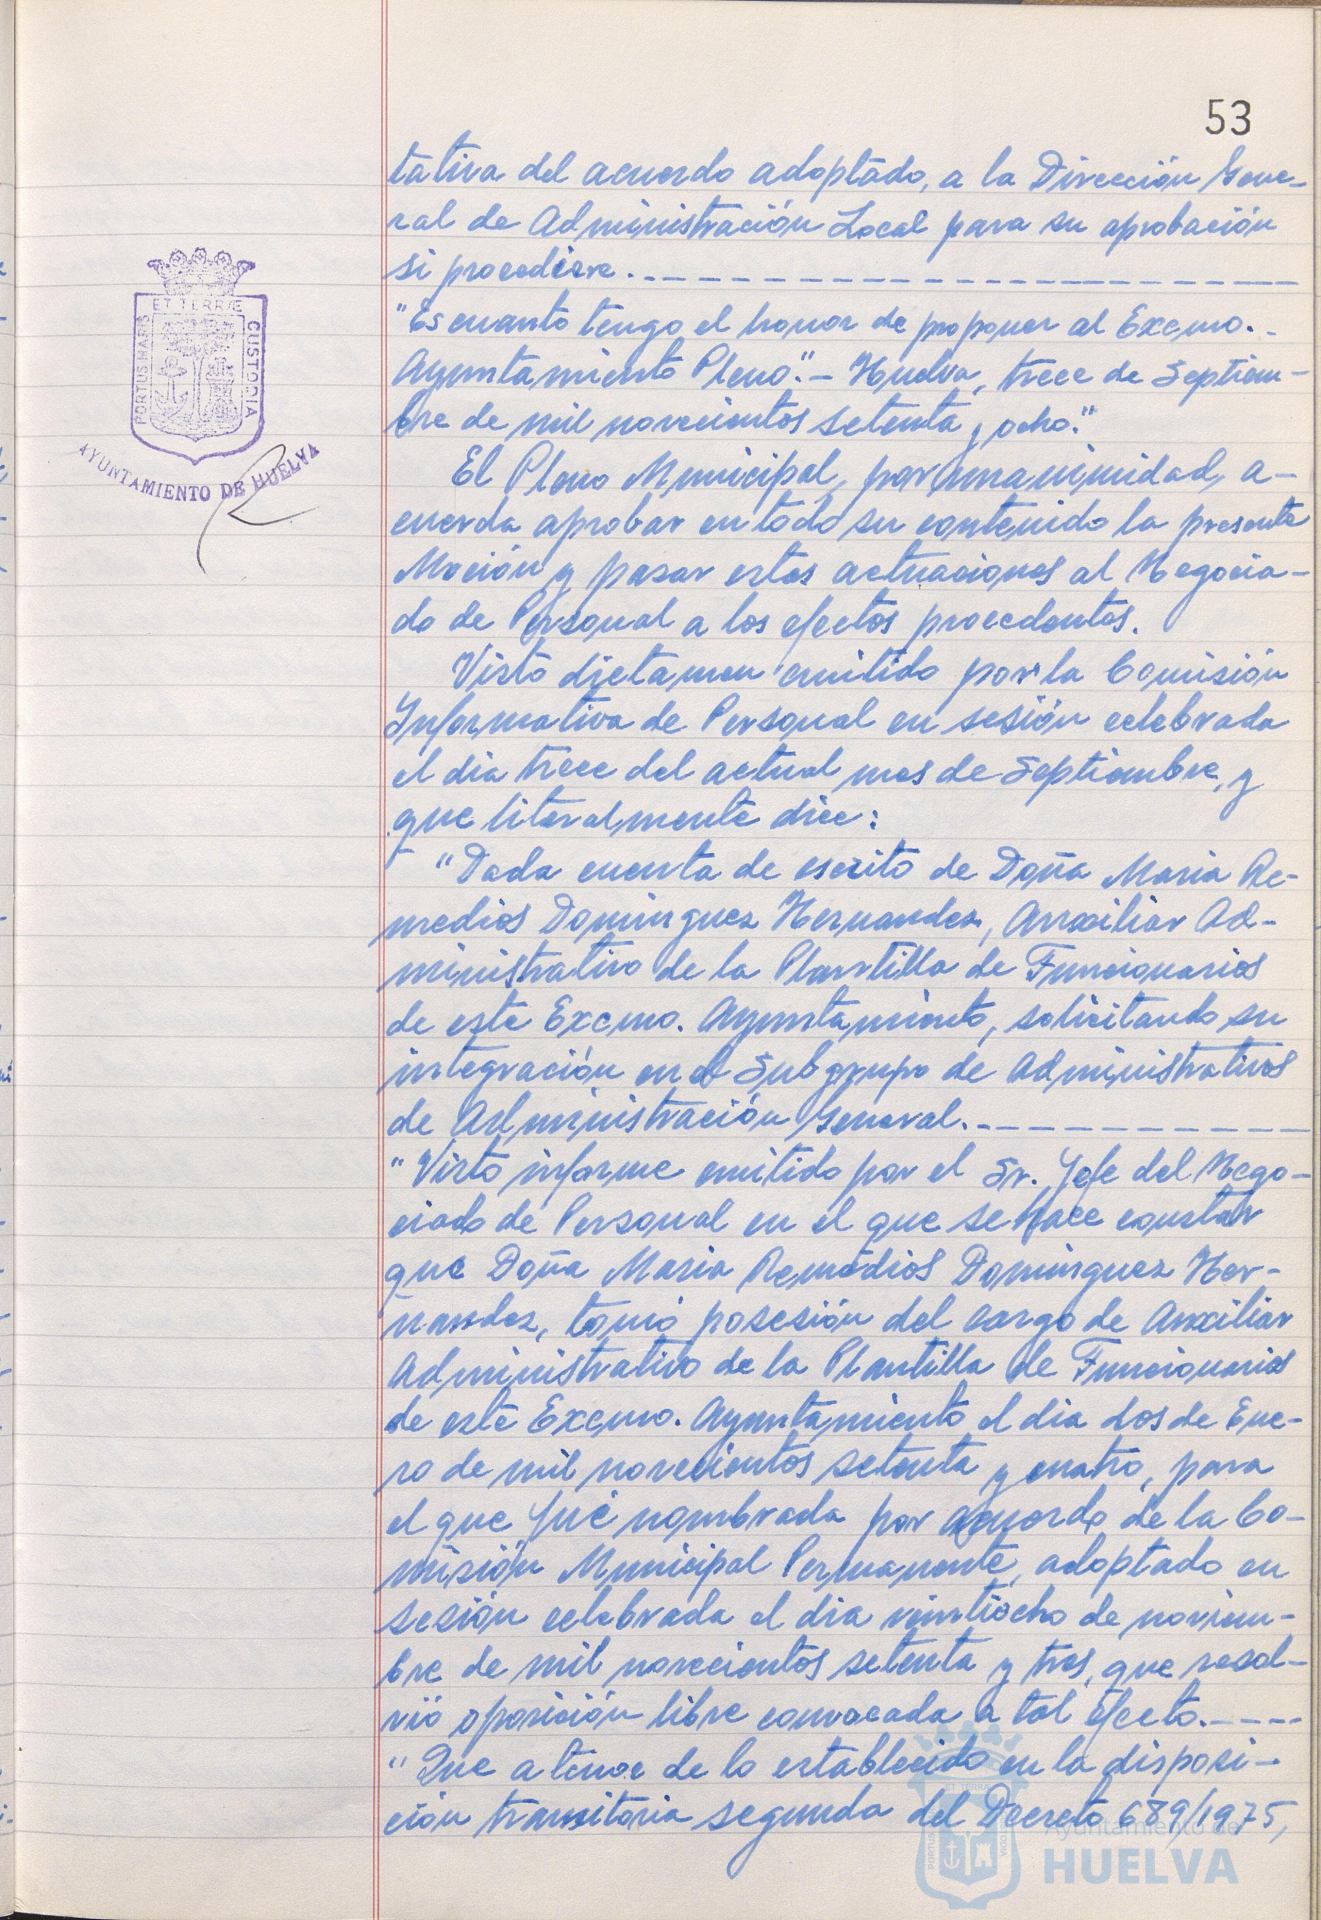 53
tativa del acuerdo adoptado, a la Dirección Gene-
ral de Administración Local para su aprobación
si procediere.
"Es cuanto tengo el honor de proponer al Excmo.-
Ayuntamiento Pleno".- Huelva, trece de Septiem-
bre de mil novecientos setenta y ocho."
El Pleno Municipal, por unanimidad, a-
cuerda aprobar en todo su contenido la presente
Moción y pasar estas actuaciones al Negocia-
do de Personal a los efectos procedentes.
Visto dictamen emitido por la Comisión
Informativa de Personal en sesión celebrada
el dia trece del actual mes de Septiembre, y
que literalmente dice:
"Dada cuenta de escrito de Doña Maria Re-
medios Dominguez Hernandez, Auxiliar Ad-
ministrativo de la Plantilla de Funcionarios
de este Excmo. Ayuntamiento, solicitando su
integración en el Subgrupo de Administrativos
de Administración General.
"Visto informe emitido por el Sr. Jefe del Nego-
ciado de Personal en el que se hace constar
que Doña Maria Remedios Dominguez Her-
nandez, tomó posesión del cargo de Auxiliar
Administrativo de la Plantilla de Funcionarios
de este Excmo. Ayuntamiento el dia dos de Ene-
ro de mil novecientos setenta y cuatro, para
el que fué nombrada por acuerdo de la Co-
misión Municipal Permanente, adoptado en
sesión celebrada el dia veintiocho de noviem-
bre de mil novecientos setenta y tres, que resol-
vió oposición libre convocada a tal efecto.
"Que a tenor de lo establecido en la disposi-
ción transitoria segunda del Decreto 689/1975,
PORTUS MARIS ET TERRÆ CUSTODIA
AYUNTAMIENTO DE HUELVA
Ayuntamiento de
HUELVA